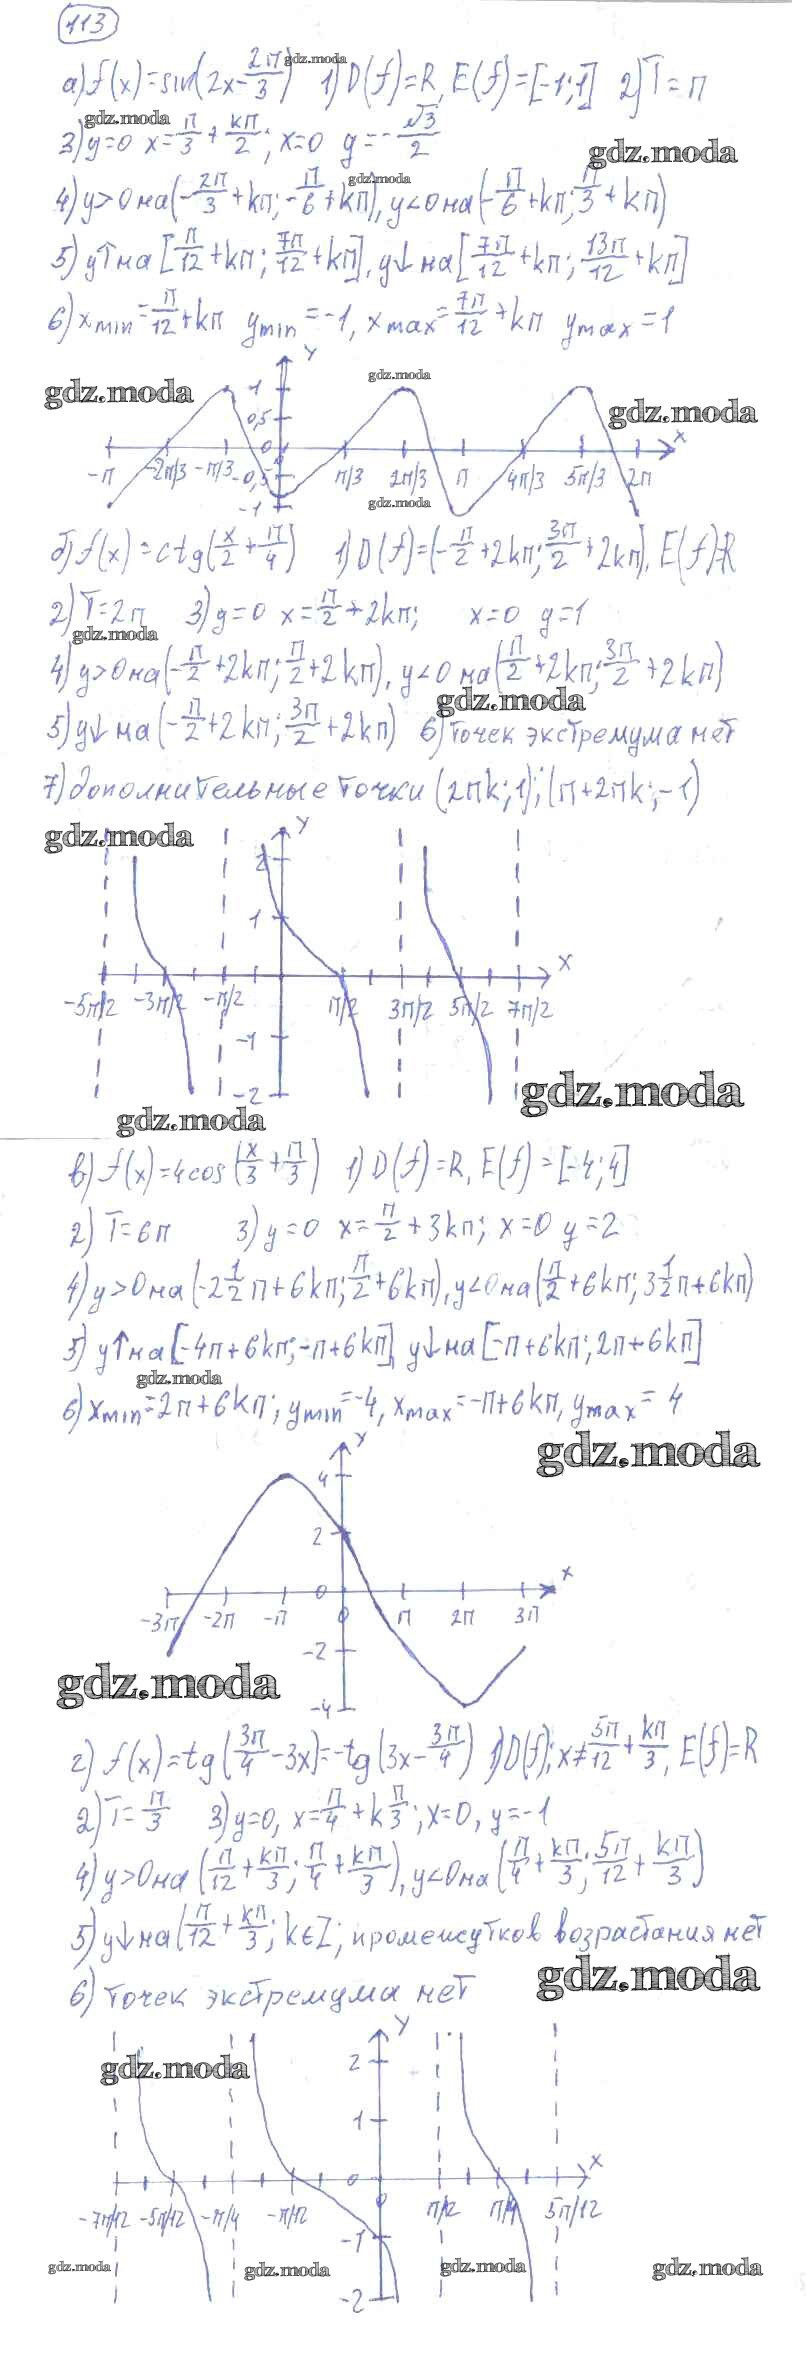 113
gdz.moda
а) f(x)=sin(2x-2π/3) 1) D(f)=R, E(f)=[-1;1] 2) T=π
gdz.moda
3) y=0 x=π/3+kπ/2; x=0 y=-√3/2
gdz.moda
gdz.moda
4) y>0 на (-2π/3+kπ;-π/6+kπ), y<0 на (-π/6+kπ;π/3+kπ)
5) y↑ на [π/12+kπ; 7π/12+kπ], y↓ на [7π/12+kπ; 13π/12+kπ]
6) x min=π/12+kπ y min=-1, x max=7π/12+kπ y max=1
gdz.moda
gdz.moda
gdz.moda
Y
1
0,5
0
-0,5
-1
X
-π -2π/3 -π/3 π/3 2π/3 π 4π/3 5π/3 2π
gdz.moda
б) f(x)=ctg(x/2+π/4) 1) D(f)=(-π/2+2kπ;3π/2+2kπ), E(f)=R
2) T=2π 3) y=0 x=π/2+2kπ; x=0 y=1
gdz.moda
4) y>0 на (-π/2+2kπ;π/2+2kπ), y<0 на (π/2+2kπ;3π/2+2kπ)
gdz.moda
5) y↓ на (-π/2+2kπ;3π/2+2kπ) 6) точек экстремума нет
7) дополнительные точки (2πk;1);(π+2πk;-1)
gdz.moda
Y
2
1
-1
-2
X
-5π/2 -3π/2 -π/2 π/2 3π/2 5π/2 7π/2
gdz.moda
gdz.moda
в) f(x)=4cos(x/3+π/3) 1) D(f)=R, E(f)=[-4;4]
2) T=6π 3) y=0 x=π/2+3kπ; x=0 y=2
4) y>0 на (-2 1/2 π+6kπ;π/2+6kπ), y<0 на (π/2+6kπ;3 1/2 π+6kπ)
5) y↑ на [-4π+6kπ;-π+6kπ], y↓ на [-π+6kπ;2π+6kπ]
gdz.moda
6) x min=2π+6kπ; y min=-4, x max=-π+6kπ, y max=4
gdz.moda
Y
4
2
0
-2
-4
X
-3π -2π -π 0 π 2π 3π
gdz.moda
г) f(x)=tg(3π/4-3x)=-tg(3x-3π/4) 1) D(f); x≠5π/12+kπ/3, E(f)=R
2) T=π/3 3) y=0, x=π/4+kπ/3; x=0, y=-1
4) y>0 на (π/12+kπ/3;π/4+kπ/3), y<0 на (π/4+kπ/3;5π/12+kπ/3)
5) y↓ на (π/12+kπ/3; k∈Z; промежутков возрастания нет
gdz.moda
6) точек экстремума нет
gdz.moda
Y
2
1
0
-1
-2
X
-7π/12 -5π/12 -π/4 -π/12 0 π/12 π/4 5π/12
gdz.moda
gdz.moda
gdz.moda
gdz.moda